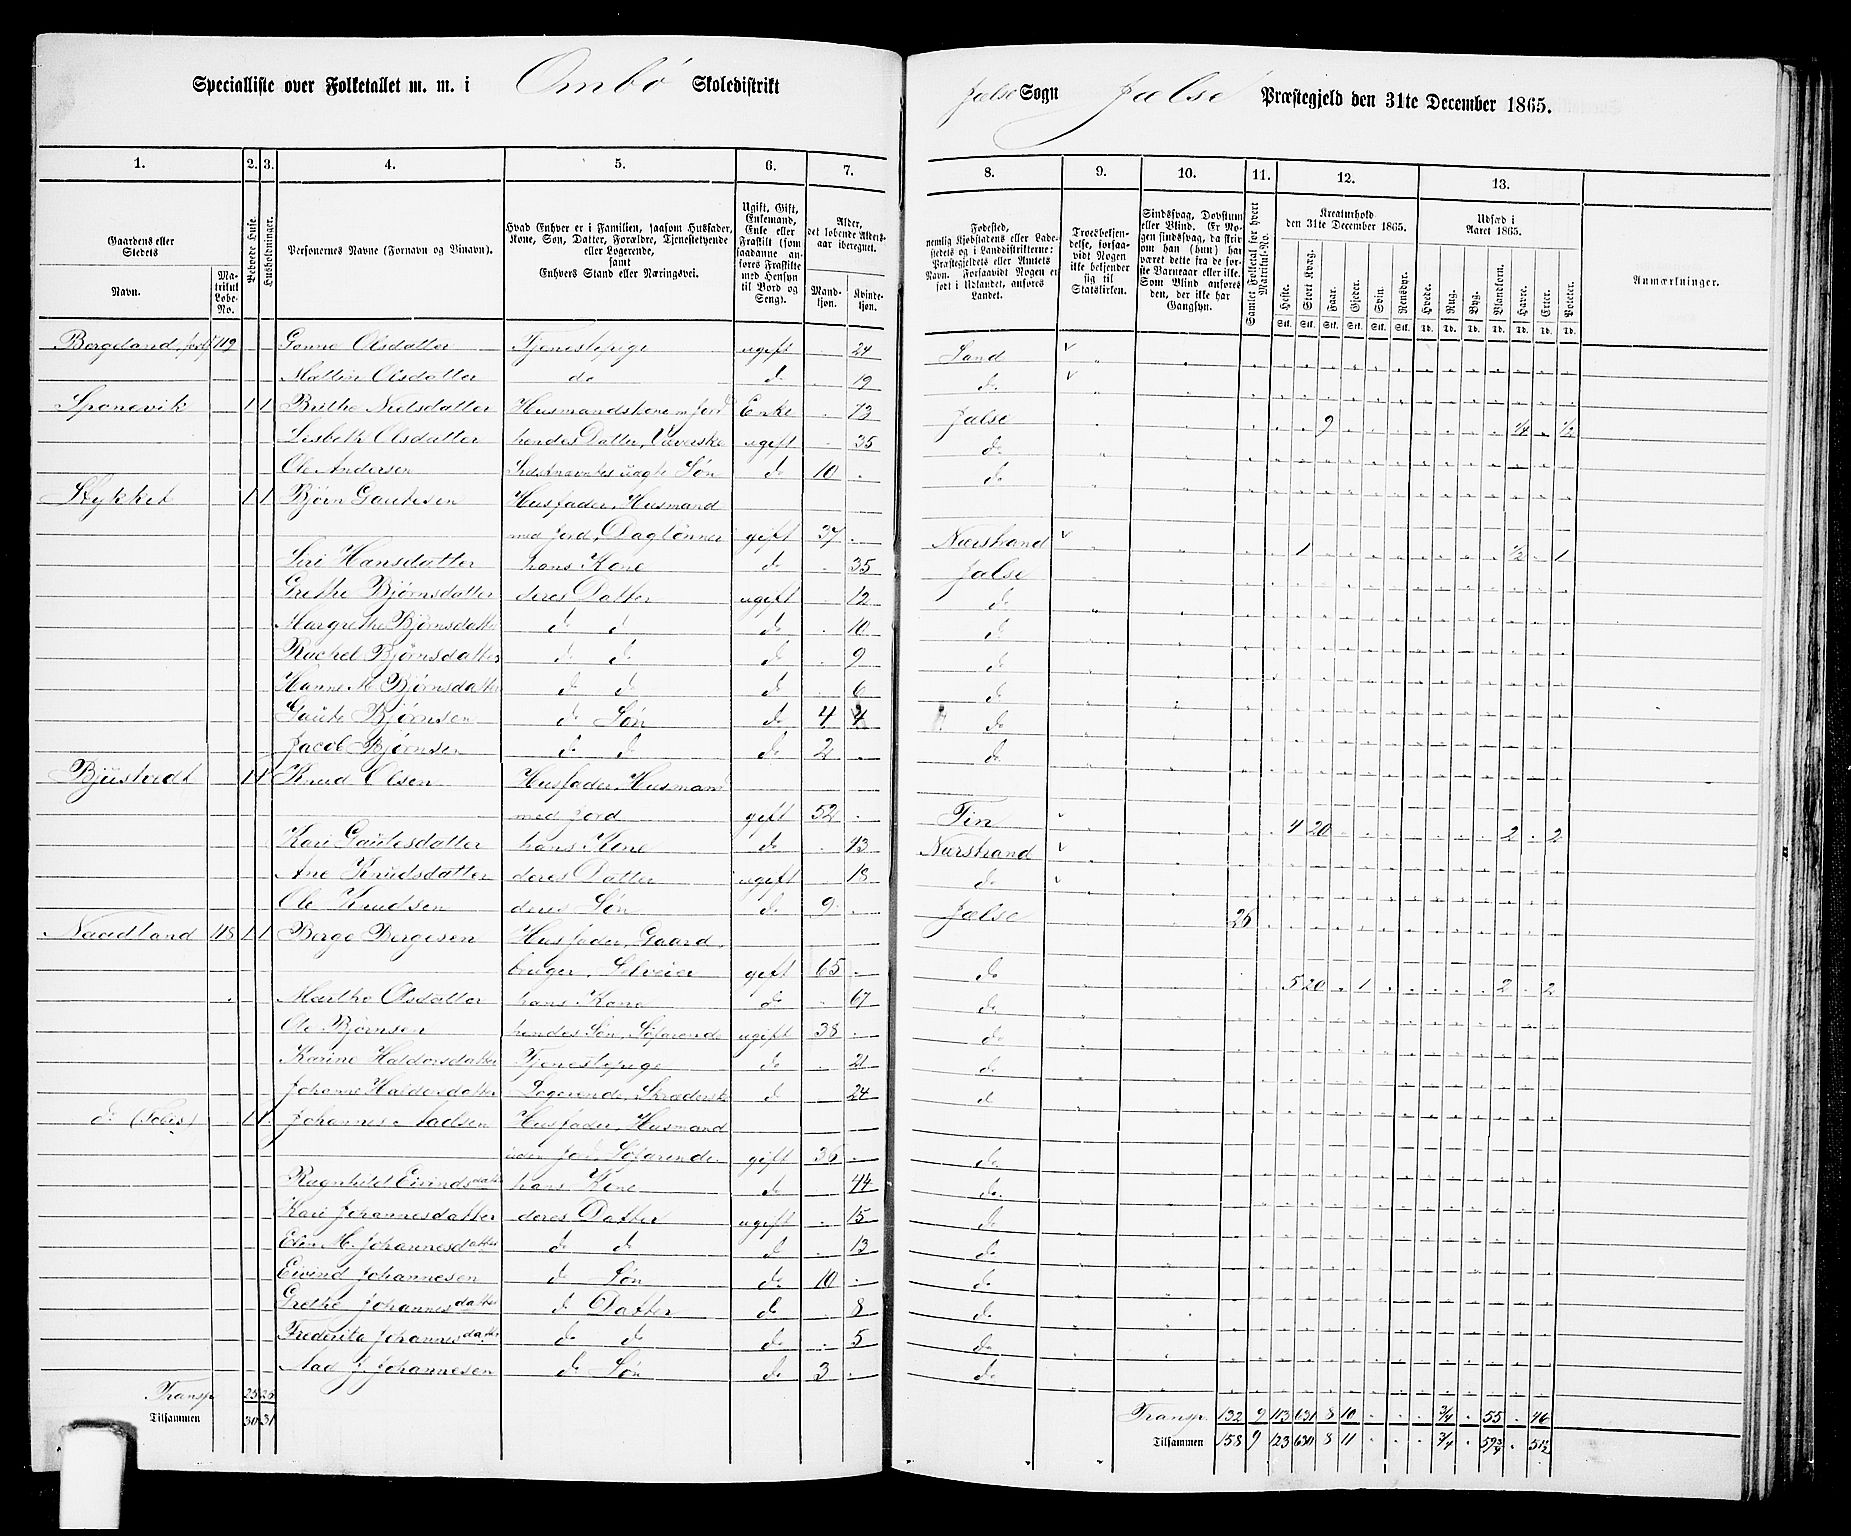 Specialliste over Folketallet m. m. i Ombö Skoledistrikt
Jælse Sogn Jælse Præstegjeld den 31te December 1865.
1. 2. 3. 4. 5. 6. 7.
8. 9. 10. 11. 12. 13.
Gaardens eller Stedets
Navn.
Matrikul Løbe-No.
Beboede Huse.
Husholdninger.
Personernes Navne (Fornavn og Binavn).
Hvad Enhver er i Familien, saasom Husfader, Kone, Søn, Datter, Forældre, Tjenestetyende eller Logerende, samt Enhvers Stand eller Næringsvei.
Ugift, Gift, Enkemand, Enke eller Fraskilt (som saadanne anføres Fraskilte med Hensyn til Bord og Seng).
Alder, det løbende Aldersaar iberegnet.
Mandkjøn.
Kvindekjøn.
Fødested, nemlig Kjøbstadens eller Ladestedets og i Landdistrikterne: Præstegjeldets eller Annexets Navn. Forsaavidt Nogen er født i Udlandet, anføres Landet.
Troesbekjendelse, forsaavidt Nogen ikke bekjender sig til Statskirken.
Sindssvag, Døvstum eller Blind. Er Nogen sindssvag, da skriv om han (hun) har været dette fra de første Barneaar eller ikke. Som Blind anføres den, der ikke har Gangsyn.
Samlet Folketal for hvert Matrikul-No.
Kreaturhold den 31te December 1865.
Heste. Stort Kvæg. Faar. Gjeder. Svin. Rensdyr.
Stk. Stk. Stk. Stk. Stk. Stk.
Udsæd i Aaret 1865.
Hvede. Rug. Byg. Blandkorn. Havre. Erter. Poteter.
Td. Td. Td. Td. Td. Td. Td.
Anmærkninger.
Bergeland 119 Gonne Olsdatter Tjenestepige ugift 24 Sand
Mallin Olsdatter do do 19 do
Sponevik 1 1 Brithe Nielsdatter Enke 73 Jælse 9 1/4 1/2
Lisbeth Olsdatter hendes Datter, Væverske ugift 35 do
Ole Andersen Søn do 10 do
Stykket 1 1 Bjørn Gautesen Husfader, Husmand
med Jord, Daglønner gift 37 Nærstrand 1 1/2 1
Siri Hansdatter hans Kone do 35 Jælse
Grethe Bjørnsdatter deres Datter ugift 12 do
Margrethe Bjørnsdatter d d do 10 do
Rachel Bjørnsdatter d d do 9 do
Hanne M Bjørnsdatter d d do 6 do
Gaute Bjørnsen d Søn do 4 4 do
Jacob Bjørnsen d d do 2 do
1 1 Knud Olsen Husfader, Husmand
med Jord gift 52 Tin 4 20 2 2
Kari Gautesdatter hans Kone do 43 Nærstrand
Ane Knudsdatter deres Datter ugift 18 do
Ole Knudsen deres Søn do 9 Jælse 26
Naadland 118 1 1 Berge Bergesen Husfader, Gaard
bruger, Selveier gift 65 do 5 20 1 2 2
Marthe Olsdatter hans Kone do 67 do
Ole Bjørnsen hendes Søn, Søfarende ugift 38 do
Karine Haldorsdatter Tjenestepige do 21 do
Johanne Haldorsdatter Logerende, Skræderske d 24 d
do 1 1 Johannes Aadsen Husfader, Husmand
uden Jord, Søfarende gift 36 do
Ragnhild Eivindsdatter hans Kone do 44 do
Kari Johannesdatter deres Datter ugift 15 do
Elen M. Johannesdatter d d d 13 do
Eivind Johannesen d Søn do 10 do
Grethe Johannesdatter d Datter do 8 do
Frederika Johannesdatter d d do 5 do
Aad J Johannesen d Søn do 3 do
Transp. 25 26 Transp. 132 9 113 631 8 10 3/4 55 46
Tilsammen 30 31 Tilsammen 158 9 123 8 11 3/4 59 3/4 51 1/2